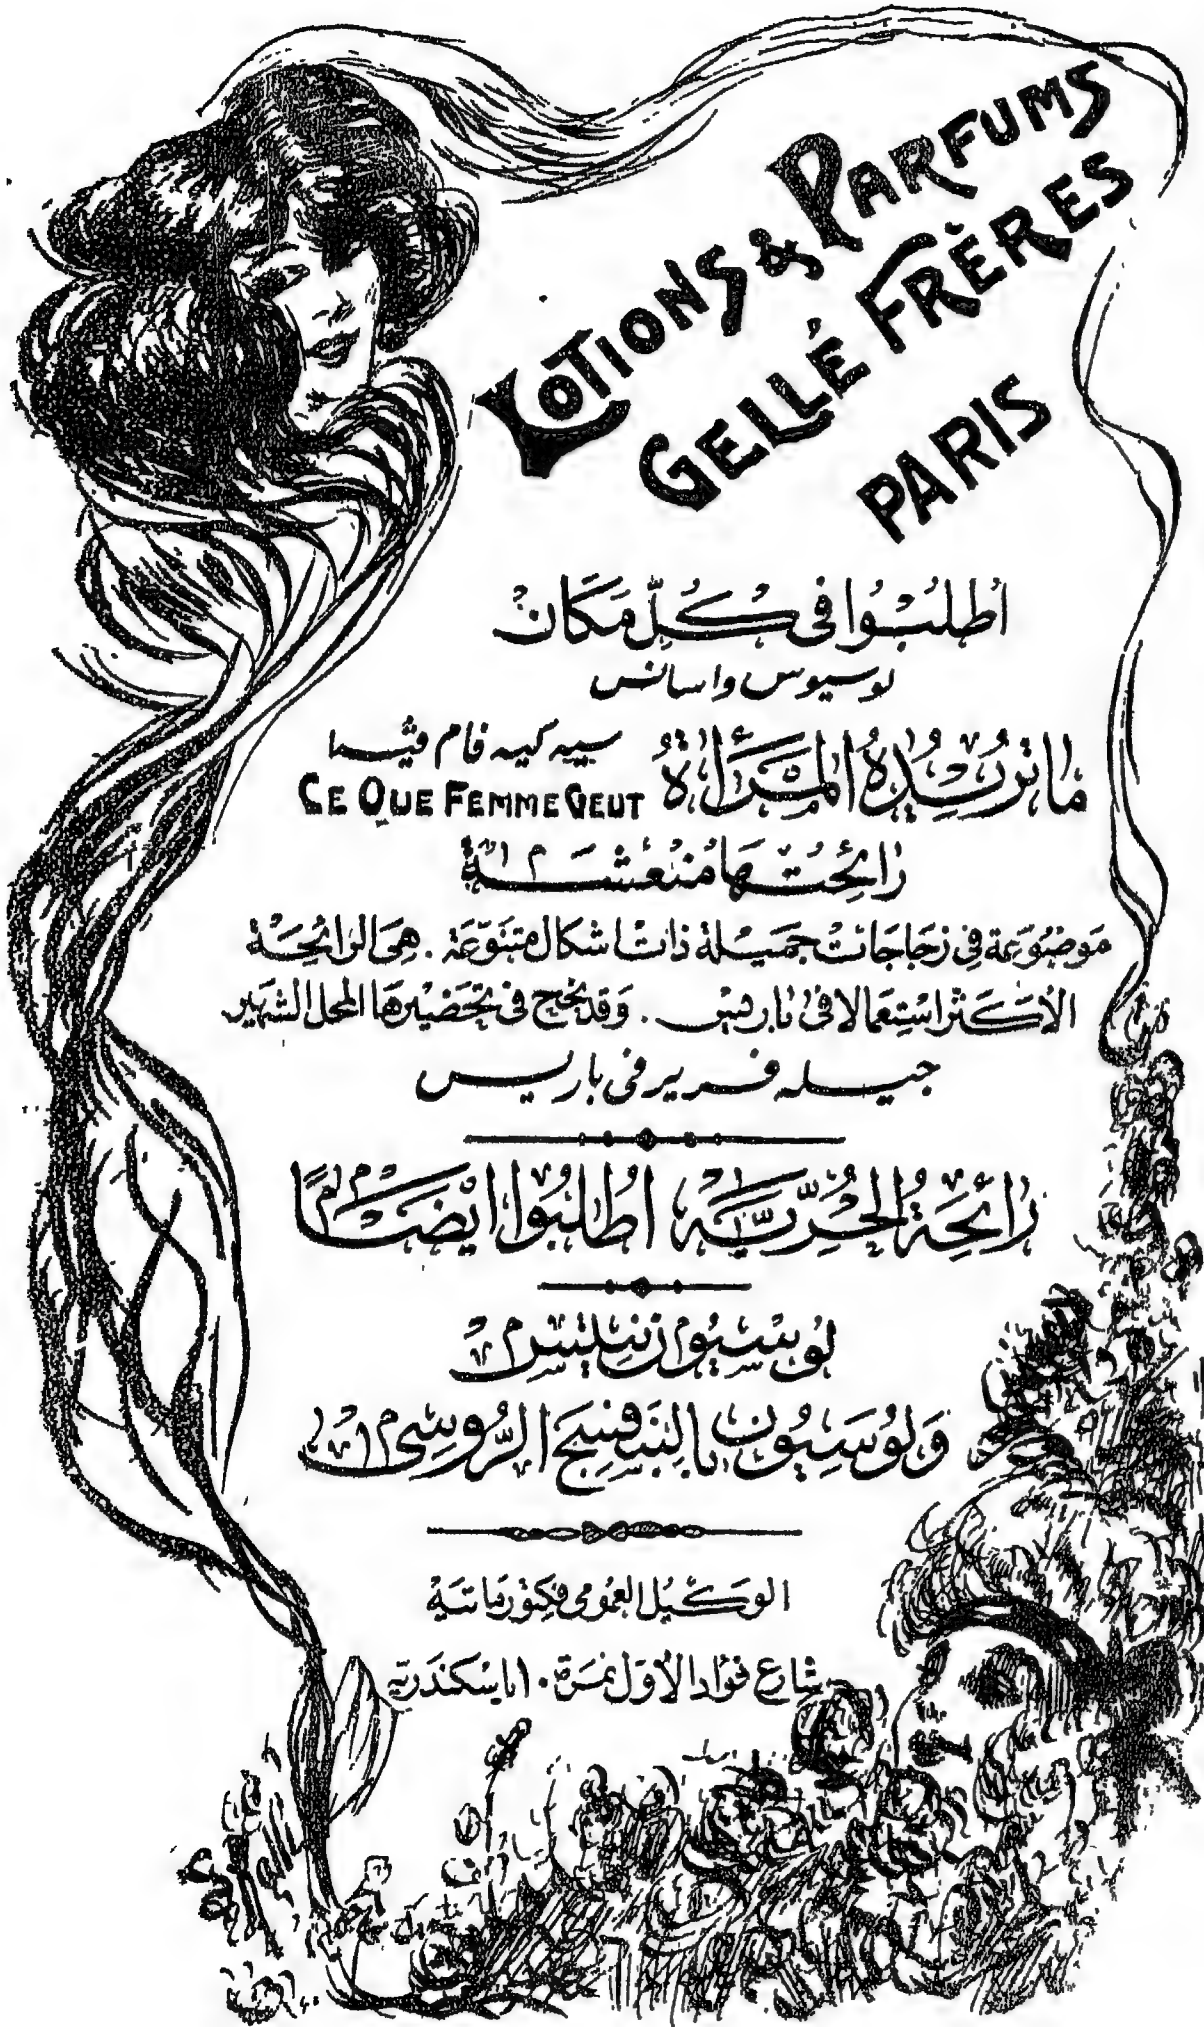 LOTIONS & PARFUMS
GELLÉ FRÈRES
PARIS
اُطْلُبُوا فى كُلِّ مَكَانْ
لوسيوس واسانس
ما تُرِيْدُهُ المَرْأَةُ
سييه كيه فام فيُّـا
CE QUE FEMME VEUT
رَائِحَتُهَا مُنْعِشَةْ
مَوضُوعَة فِى زجَاجَاتْ جَمَيْلة ذاتْ اشكال متنَوّعَة . هِىَ الرَائِحَة
الأكثَر اسْتِعمَالا فى باريس . وَقد نجح فى تحْضيْرهَا المحل الشهير
جيله فرير فى باريس
رَائِحَةُ الحُرِّيَّه اُطلُبُوا ايْضًا
لوسْيون نيليس
وَلوُسَيون بالبنَفسِجَ الرُّوسِى
الوَكيل العمُومى فكتور مَاتتيَه
شارع فؤاد الأوَل نمرَة ١٠ باسْكندَرية